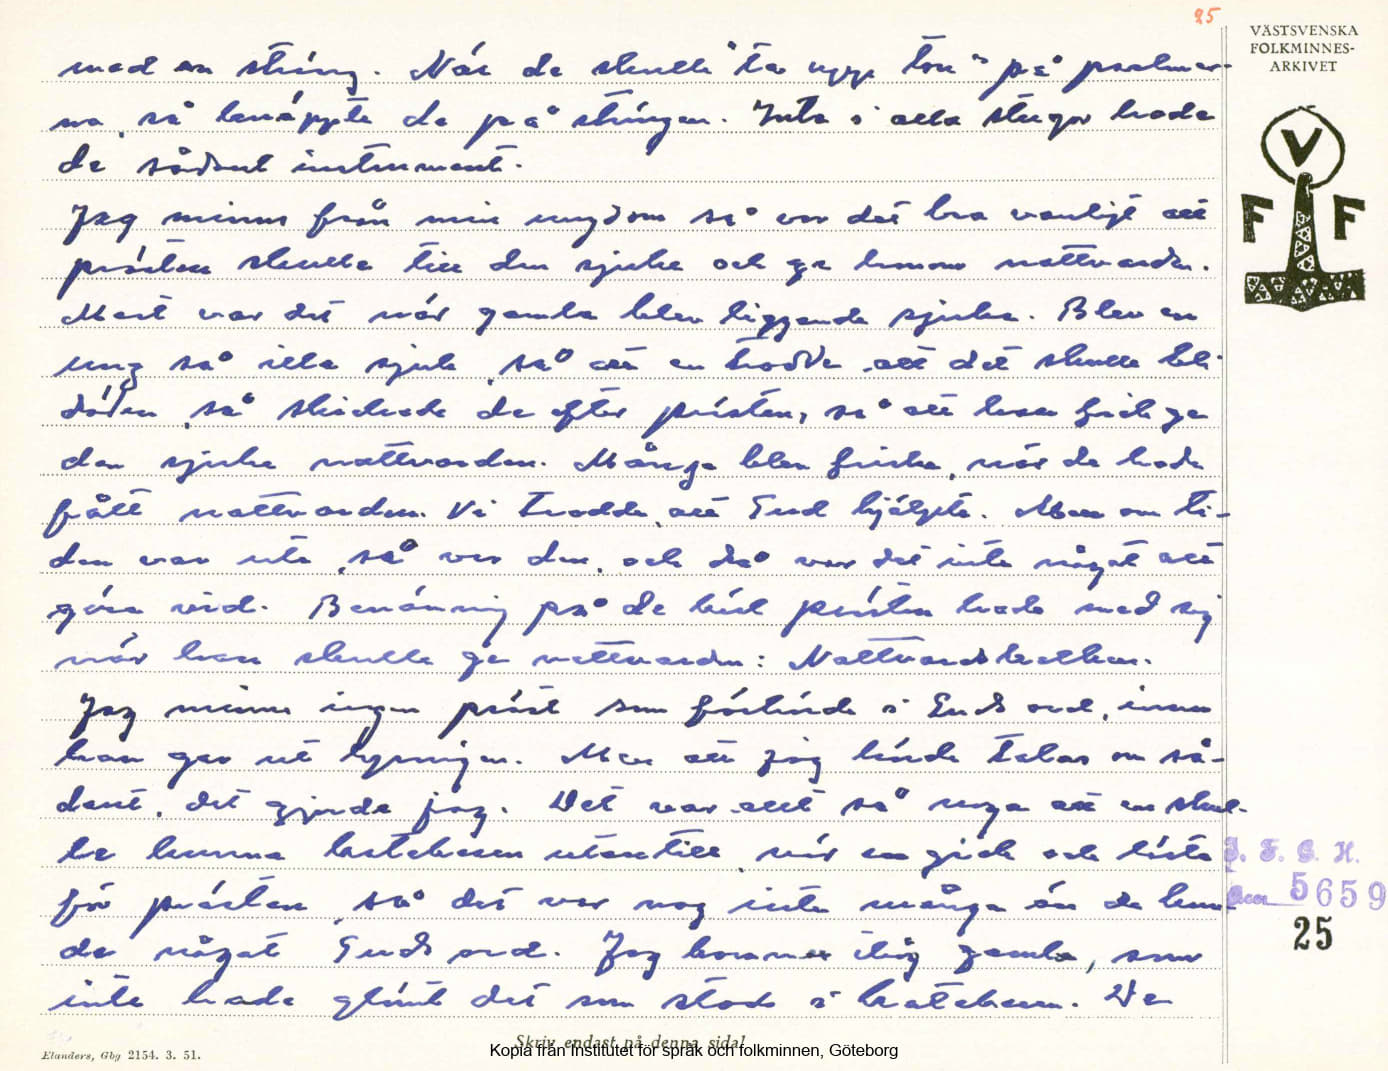 25
VÄSTSVENSKA
FOLKMINNES-
ARKIVET
V
F F
med en sträng. När de skulle "ta upp ton" på psalmer-
na, så knäppte de på strängen. Inte i alla stugor hade
de sådant instrument.
Jag minns från min ungdom så var det bra vanligt att
prästen skulle till den sjuke och ge honom nattvarden.
Mest var det när gamla blev liggande sjuka. Blev en
ung så illa sjuk, så att en trodde att det skulle bli
döden, så skickade de efter prästen, så att han fick ge
den sjuke nattvarden. Många blev friska, när de hade
fått nattvarden. Vi trodde, att Gud hjälpte. Men om ti-
den var ute, så var den, och då var det inte något att
göra vid. Benämning på de kärl prästen hade med sig
när han skulle ge nattvarden: Nattvardskalken.
Jag minns ingen präst som förhörde i Guds ord, innan
han gav ut lysningen. Men att jag hörde talas om så-
dant, det gjorde jag. Det var allt så noga att en skul-
le kunna katekesen utantill, när en gick och läste
för prästen, så det var nog inte många än de kun-
de något Guds ord. Jag kommer ihåg gamla, som
inte hade glömt det som stod i katekesen. De
I. F. G. H.
Acc 5659
25
Skriv endast på denna sida!
Kopia från Institutet för språk och folkminnen, Göteborg
Elanders, Gbg 2154. 3. 51.